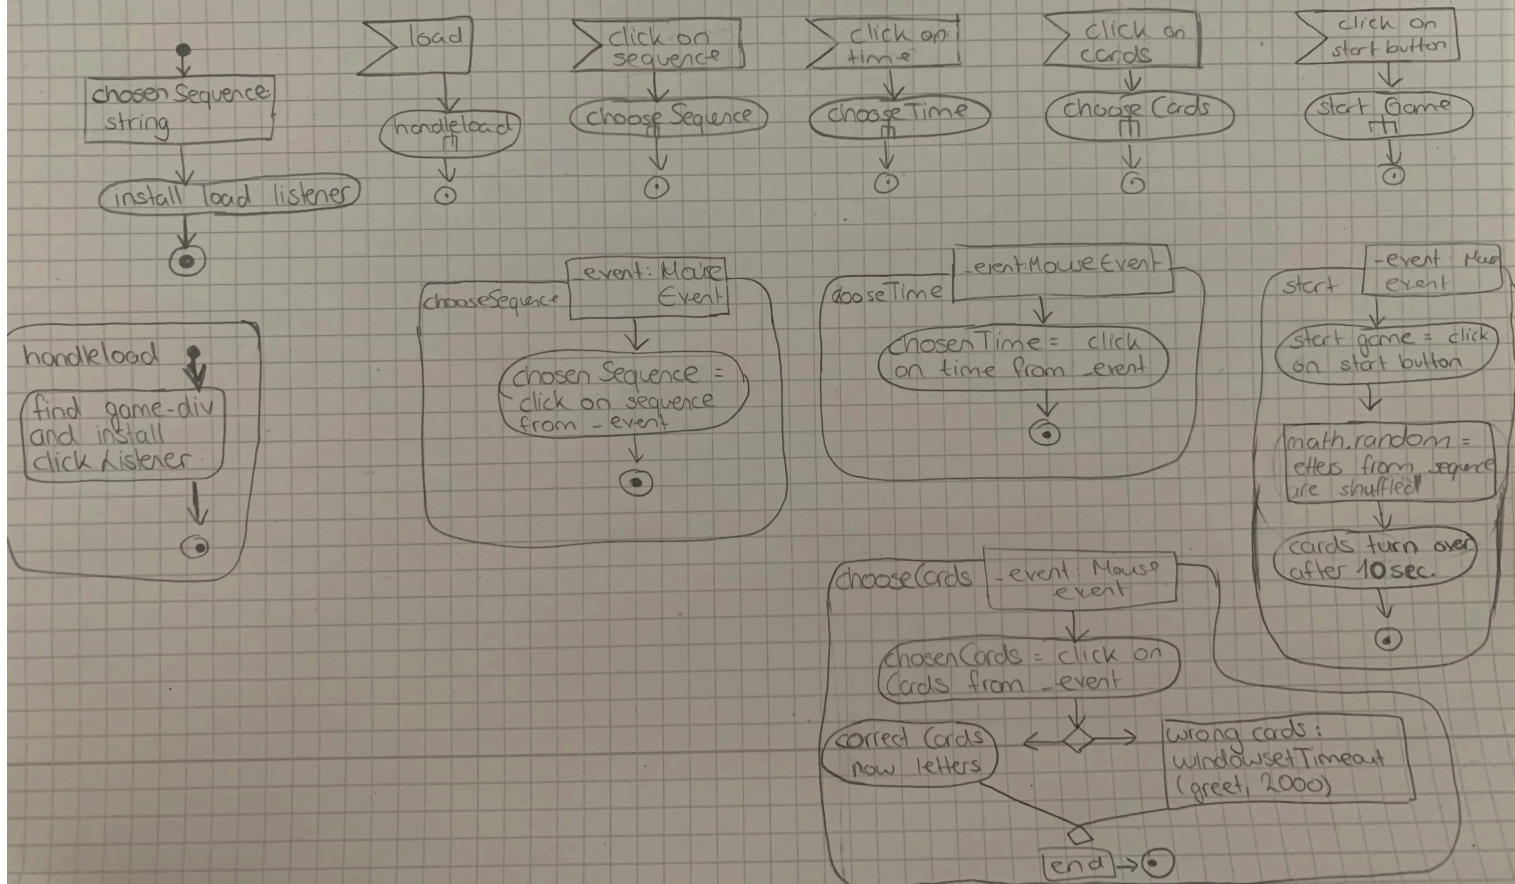 chosen Sequence:
string
install load listener
load
handleload
click on
sequence
choose Sequence
click on
time
choose Time
click on
cards
choose Cards
click on
start button
start Game
handleload
find game-div
and install
click Listener.
chooseSequence
_event: Mouse
Event
chosen Sequence =
click on sequence
from _event
ooseTime
_event:MouseEvent
chosenTime = click
on time from _event
start
_event
event
start game = click
on start button
math.random =
etters from sequence
are shuffled
cards turn over
after 10 sec.
chooseCards
_event: Mouse
event
chosenCards = click on
Cards from _event
correct Cards
now letters
wrong cards:
windowsetTimeout
(greet, 2000)
end